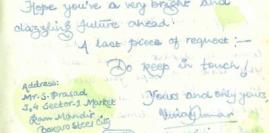 Hope you're a very bright and
dazzling future ahead.
A last piece of request :—
Do keep in touch!
Yours and only yours
Address:
Mr. S. Prasad
Sector-2 Market
Ram Mandir
Bokaro Steel City